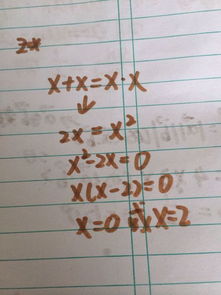 2x
x+x=x·x
↓
2x=x²
x²-2x=0
x(x-2)=0
x=0 x=2